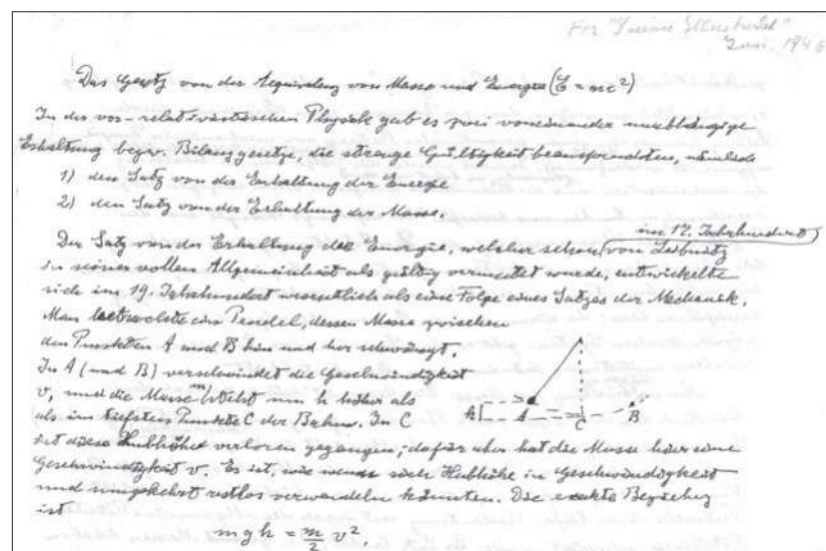 For "Science Illustrated"
Juni 1946
Das Gesetz von der Aequivalenz von Masse und Energie (E = mc²)
In der vor-relativistischen Physik gab es zwei voneinander unabhängige
Erhaltung bezw. Bilanzgesetze, die strenge Gültigkeit beanspruchten, nämlich
1) den Satz von der Erhaltung der Energie
2) den Satz von der Erhaltung der Masse.
im 17. Jahrhundert
Der Satz von der Erhaltung der Energie, welcher schon von Leibnitz
in seiner vollen Allgemeinheit als gültig vermutet wurde, entwickelte
sich im 19. Jahrhundert wesentlich als eine Folge eines Satzes der Mechanik.
Man betrachte ein Pendel, dessen Masse zwischen
den Punkten A und B hin und her schwingt.
In A (und B) verschwindet die Geschwindigkeit
v, und die Masse m um h höher als
als im tiefsten Punkte C der Bahn. In C
ist diese Hubhöhe verloren gegangen; dafür aber hat die Masse hier eine
Geschwindigkeit v. Es ist, wie wenn sich Hubhöhe in Geschwindigkeit
und umgekehrt restlos verwandeln könnten. Die exakte Beziehung
ist
mgh = m/2 v².
h A C B